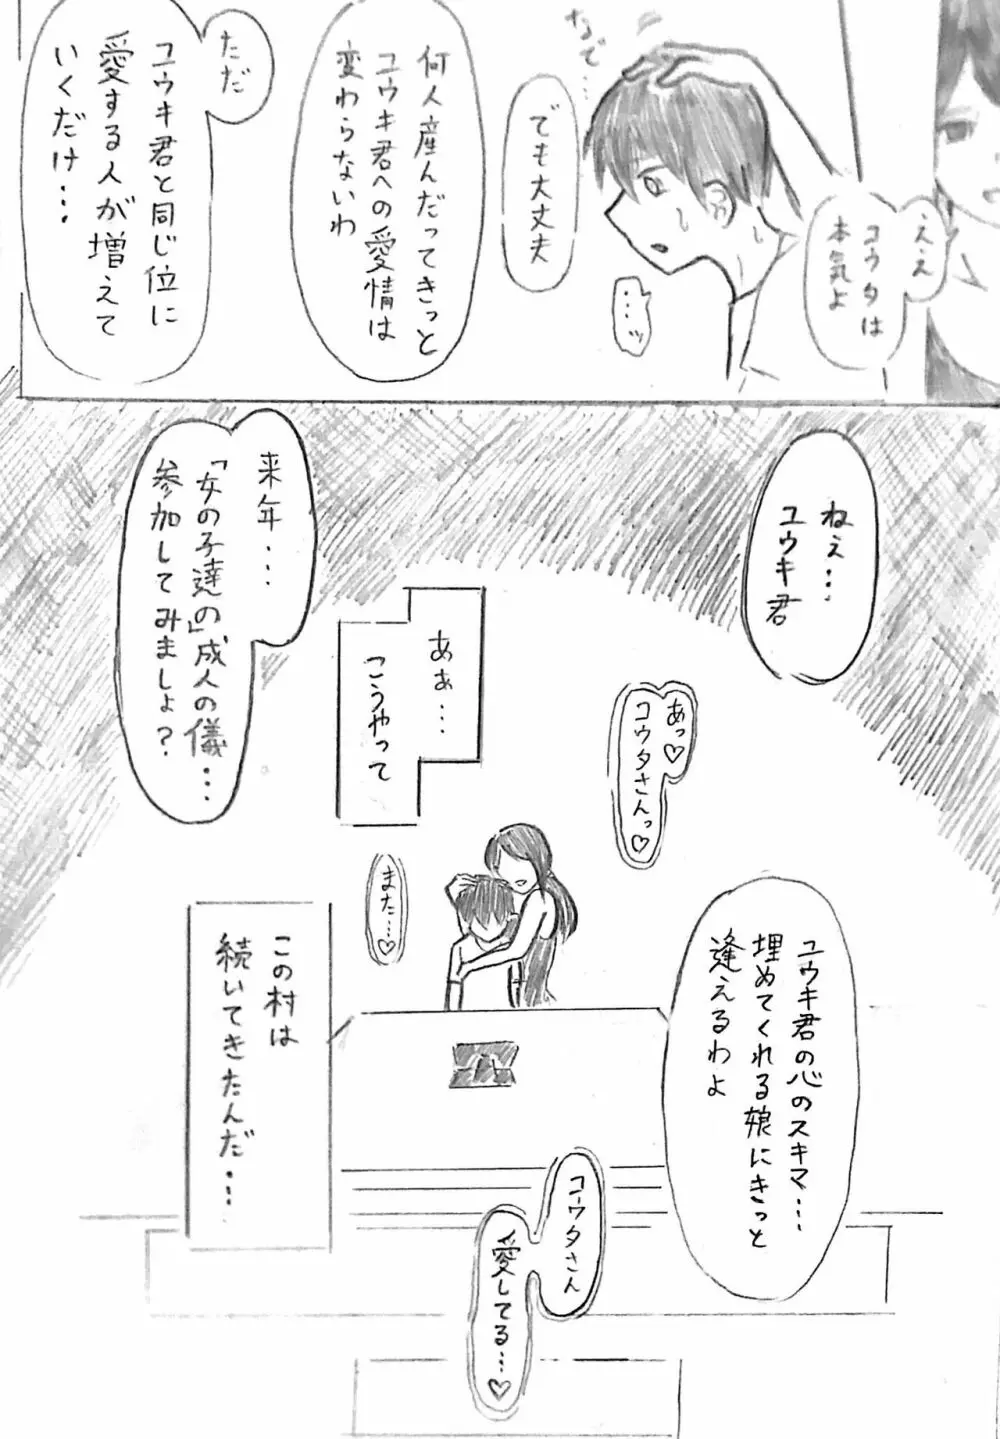 ええ
コウタは
本気よ
なで…
…ッ
でも大丈夫
何人産んだってきっと
ユウキ君への愛情は
変わらないわ
ただ
ユウキ君と同じ位に
愛する人が増えて
いくだけ…
ねぇ…
ユウキ君
来年…
「女の子達の」成人の儀…
参加してみましょ？
あぁ…
こうやって
あっ♡
コウタさんっ♡
また…♡
ユウキ君の心のスキマ…
埋めてくれる娘にきっと
逢えるわよ
この村は
続いてきたんだ…
コウタさん
愛してる…♡